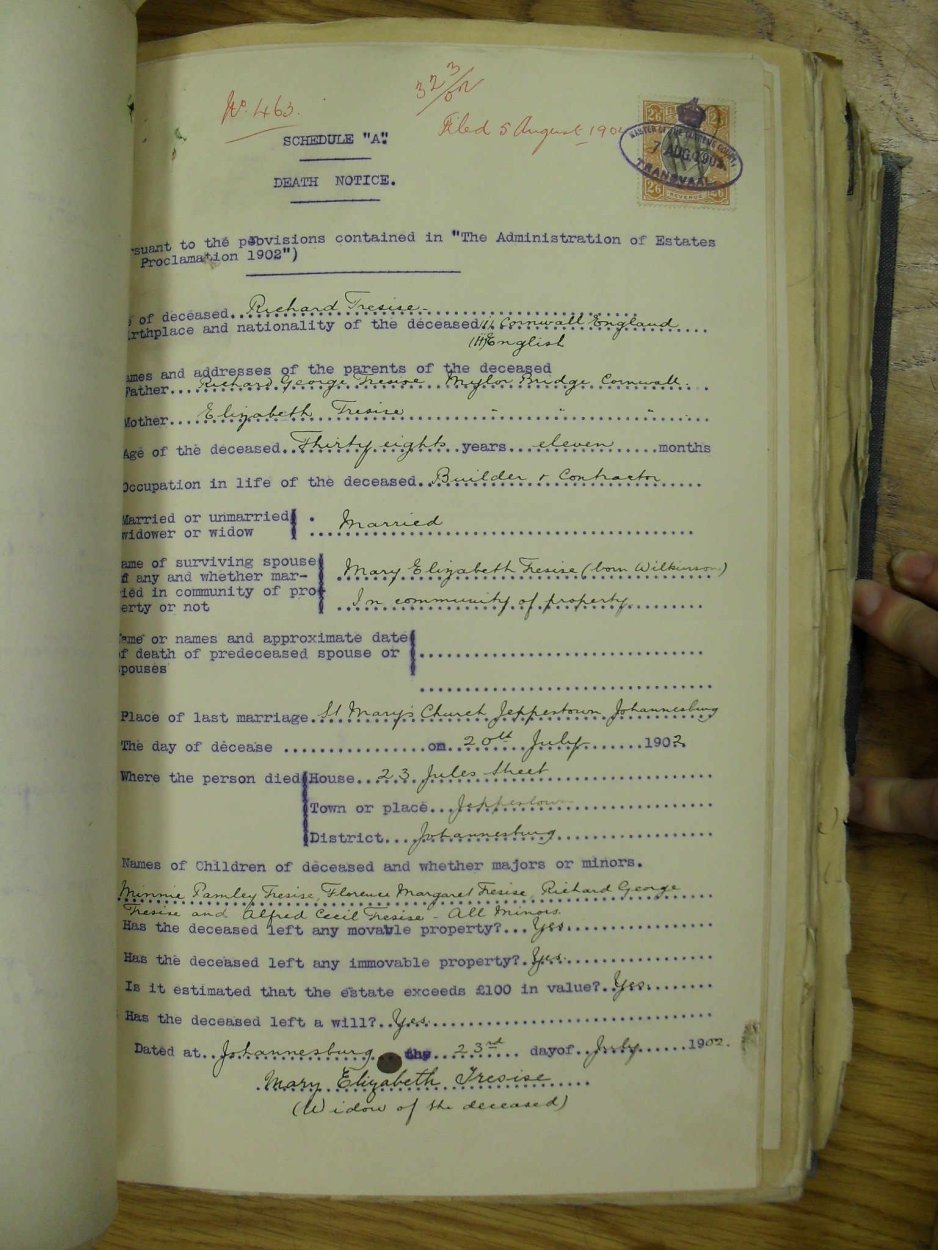 No. 463.
32 3/02
Filed 5 August 1902
SCHEDULE "A".
DEATH NOTICE.
2/6 2/6
MASTER OF THE SUPREME COURT
7 AUG 1902
TRANSVAAL
2/6 REVENUE 2/6
rsuant to the provisions contained in "The Administration of Estates
Proclamation 1902")
of deceased Richard Tresise
irthplace and nationality of the deceased (1) Cornwall England
(11) English
ames and addresses of the parents of the deceased
Father Richard George Tresise Mylor Bridge Cornwall.
Mother Elizabeth Tresise " " "
Age of the deceased Thirty eight years eleven months
Occupation in life of the deceased Builder & Contractor
Married or unmarried
widower or widow Married
ame of surviving spouse
f any and whether mar- Mary Elizabeth Tresise (born Wilkinson)
ied in community of pro
erty or not In community of property
ame or names and approximate date
f death of predeceased spouse or
pouses
Place of last marriage St Mary's Church Jeppestown Johannesburg
The day of decease on 20th July 1902
Where the person died House 23 Jules Street
Town or place Jeppestown
District Johannesburg
Names of Children of deceased and whether majors or minors.
Minnie Pamley Tresise, Florence Margaret Tresise, Richard George
Tresise and Alfred Cecil Tresise - All Minors.
Has the deceased left any movable property? Yes.
Has the deceased left any immovable property? Yes.
Is it estimated that the estate exceeds £100 in value? Yes.
Has the deceased left a will? Yes.
Dated at Johannesburg the 23rd day of July 1902.
Mary Elizabeth Tresise
(Widow of the deceased)